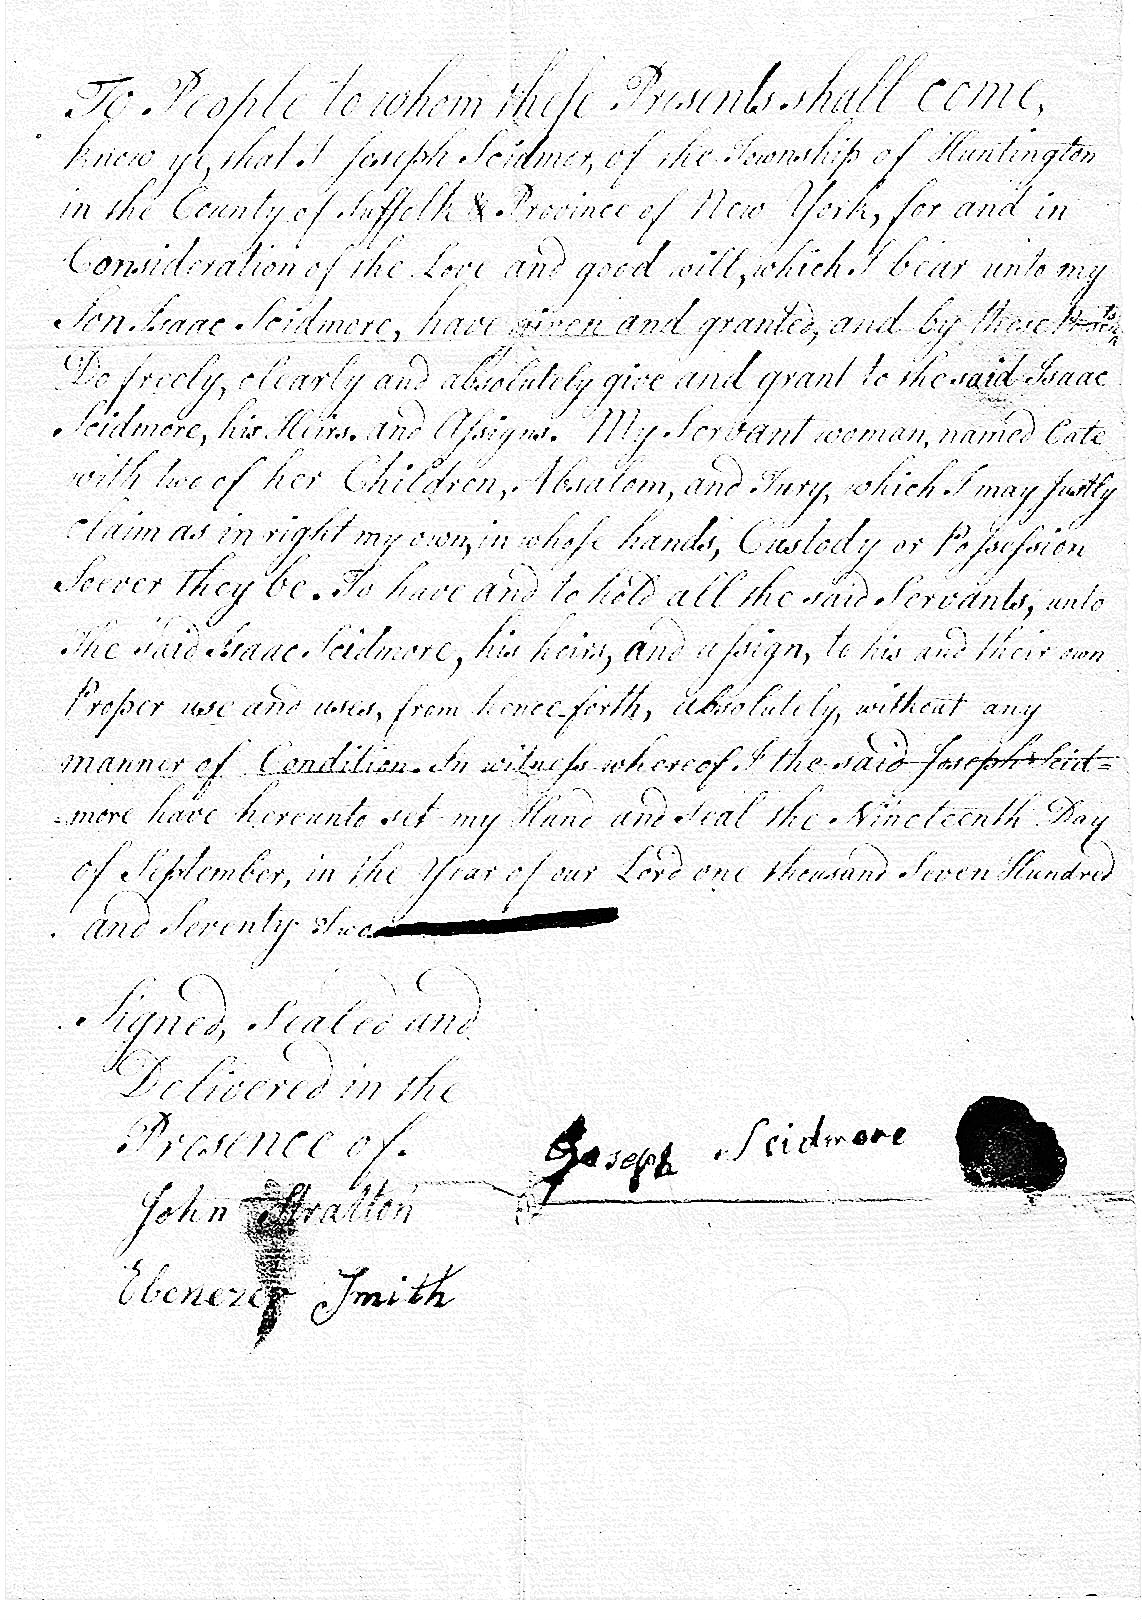 To People to whom these Presents shall come,
know ye, that I Joseph Scidmor, of the Township of Huntington
in the County of Suffolk & Province of New York, for and in
Consideration of the Love and good will, which I bear unto my
Son Isaac Scidmore, have given and granted, and by these
Do freely, clearly and absolutely give and grant to the said Isaac
Scidmore, his Heirs and Assigns. My Servant woman, named Cate
with two of her Children, Absalom, and Jury, which I may justly
claim as in right my own, in whose hands, Custody or Possession
Soever they be. To have and to hold all the said Servants, unto
the said Isaac Scidmore, his heirs, and assign, to his and their own
Proper use and uses, from hence forth, absolutely, without any
manner of Condition. In witness whereof I the said Joseph Scid=
=more have hereunto set my Hand and Seal the Nineteenth Day
of September, in the Year of our Lord one thousand Seven Hundred
and Seventy Two
Signed, Sealed and
Delivered in the
Presence of.
Joseph Scidmore
John Stratton
Ebenezer Smith